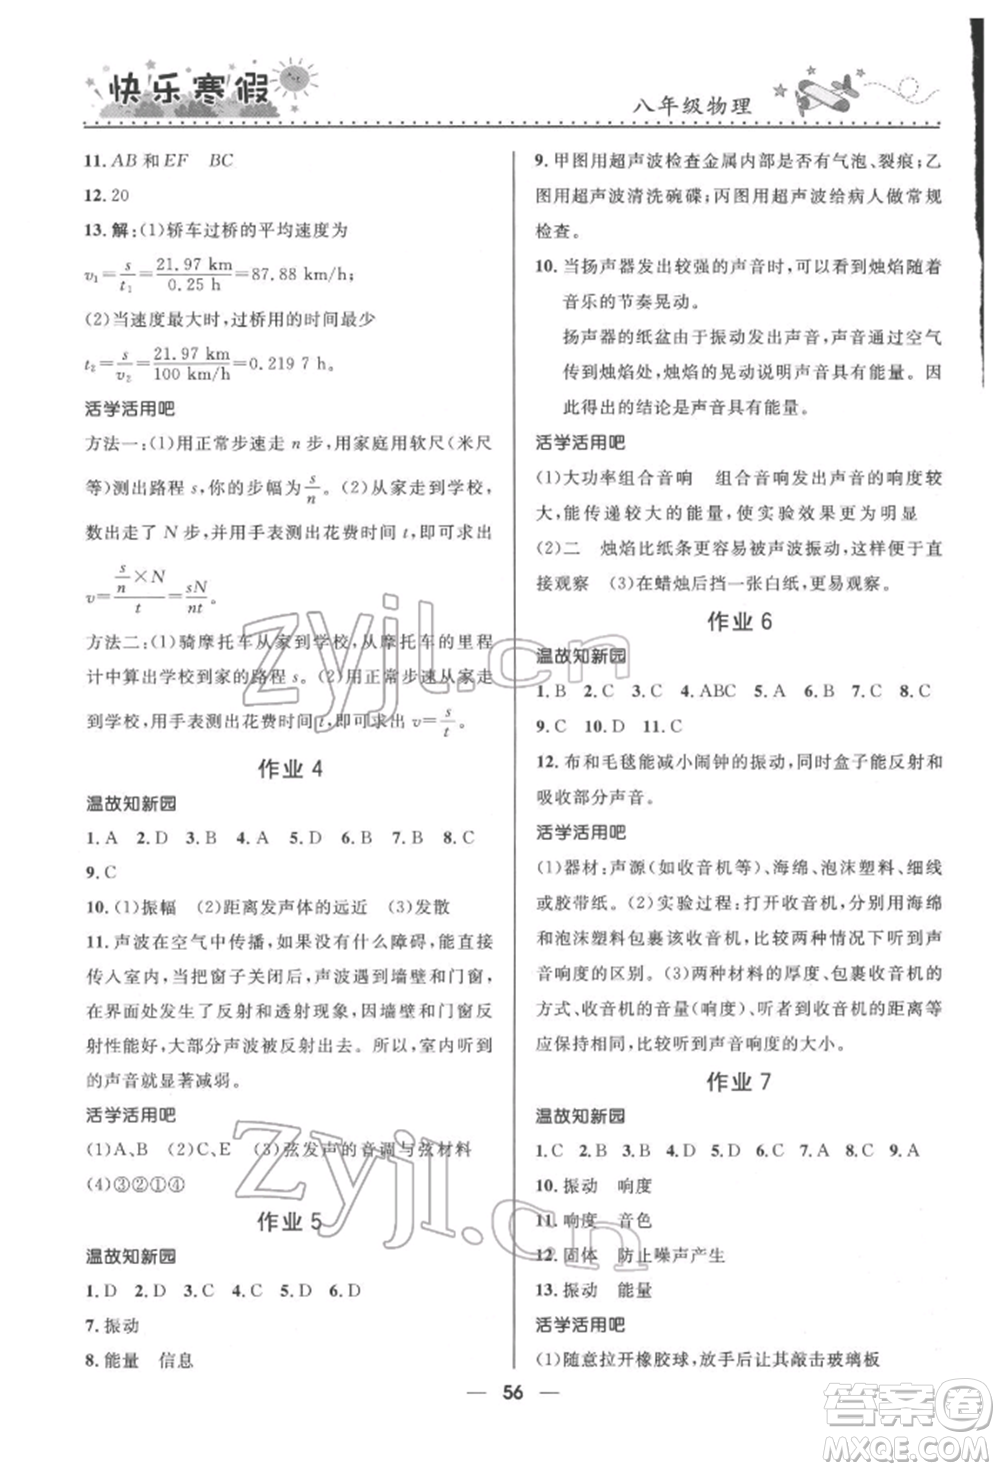 快乐寒假
八年级物理
11. AB 和 EF  BC
12. 20
13. 解:(1)轿车过桥的平均速度为
v₁=s/t₁=21.97 km/0.25 h=87.88 km/h;
(2)当速度最大时,过桥用的时间最少
t₂=s/v₂=21.97 km/100 km/h=0.219 7 h
活学活用吧
方法一:(1)用正常步速走 n 步,用家庭用软尺(米尺
等)测出路程 s,你的步幅为 s/n。(2)从家走到学校,
数出走了 N 步,并用手表测出花费时间 t,即可求出
v=(s/n×N)/t=sN/nt。
方法二:(1)骑摩托车从家到学校,从摩托车的里程
计中算出学校到家的路程 s。(2)用正常步速从家走
到学校,用手表测出花费时间 t,即可求出 v=s/t。
作业 4
温故知新园
1. A  2. D  3. B  4. A  5. D  6. D  7. B  8. C
9. C
10. (1)振幅  (2)距离发声体的远近  (3)发散
11. 声波在空气中传播,如果没有什么障碍,能直接
传入室内,当把窗子关闭后,声波遇到墙壁和门窗,
在界面处发生了反射和透射现象,因墙壁和门窗
反射性能好,大部分声波反射出去。所以,室内听到
的声音就显著减弱。
活学活用吧
(1)A、B  (2)C、E  (3)弦发声的音调与弦材料
(4)③②①④
作业 5
温故知新园
1. D  2. D  3. C  4. C  5. D  6. C
7. 振动
8. 能量  信息
9. 甲图用超声波检查金属内部是否有气泡、裂痕;乙
图用超声波清洗碗碟;丙图用超声波给病人做常规
检查。
10. 当扬声器发出较强的声音时,可以看到烛焰随着
音乐的节奏晃动。
扬声器的纸盆由于振动发出声音,声音通过空气
传到了烛焰处,烛焰的晃动说明声音具有能量。因
此得出的结论是声音具有能量。
活学活用吧
(1)大功率组合音响  组合音响发出声音的响度较
大,能传递较大的能量,使实验效果更为明显
(2)二  烛焰比纸条更容易被声波振动,这样便于直
接观察  (3)在蜡烛后挡一张白纸,更易观察。
作业 6
温故知新园
1. B  2. C  3. C  4. ABC  5. A  6. B  7. C  8. C
9. C  10. D  11. C
12. 布和毛毯能减小闹钟的振动,同时盒子能反射和
吸收部分声音。
活学活用吧
(1)器材:声源(如收音机等)、海绵、泡沫塑料、细线
或胶带纸。(2)实验过程:打开收音机,分别用海绵
和泡沫塑料包裹该收音机,比较两种情况下听到声
音响度的区别。(3)两种材料的厚度、包裹收音机的
方式、收音机的音量(响度)、听者到收音机的距离
应保持相同,比较听到声音响度的大小。
作业 7
温故知新园
1. C  2. B  3. B  4. D  5. D  6. A  7. A  8. C  9. A
10. 振动  响度
11. 响度  音色
12. 固体  防止噪声产生
13. 振动  能量
活学活用吧
(1)随意拉开橡胶球,放手后让其敲击玻璃板
56
zyjl.cn
zyjl.cn
答案圈
MXQE.COM